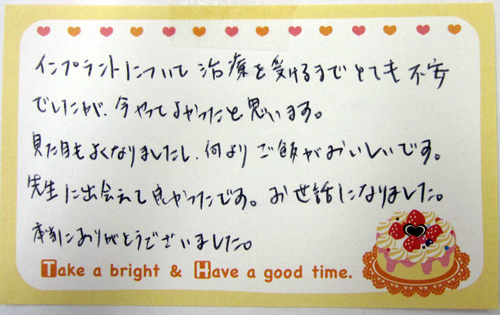 インプラントについて治療を受けるまでとても不安
でしたが、今やってよかったと思います。
見た目もよくなりましたし、何よりご飯がおいしいです。
先生に出会えて良かったです。お世話になりました。
本当にありがとうございました。
Take a bright & Have a good time.